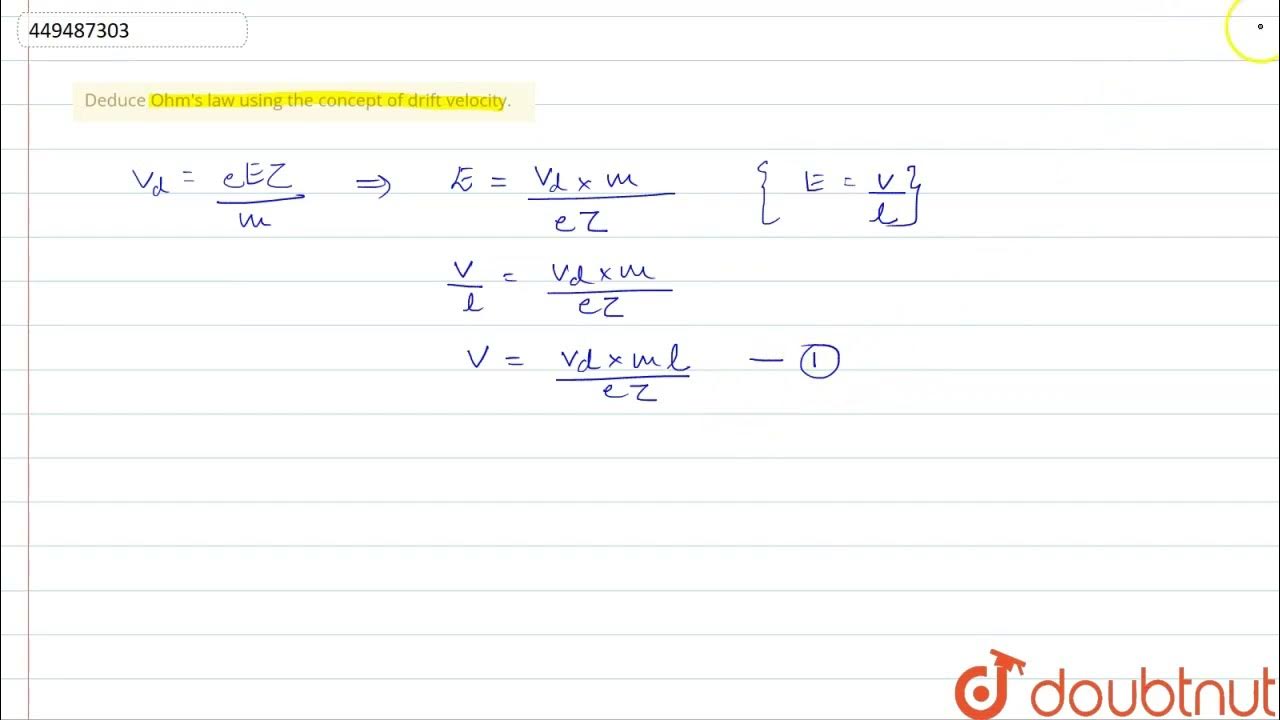 449487303
Deduce Ohm's law using the concept of drift velocity.
Vd = eEτ/m ⇒ E = Vd × m/eτ { E = V/l }
V/l = Vd × m/eτ
V = Vd × ml/eτ — ①
doubtnut